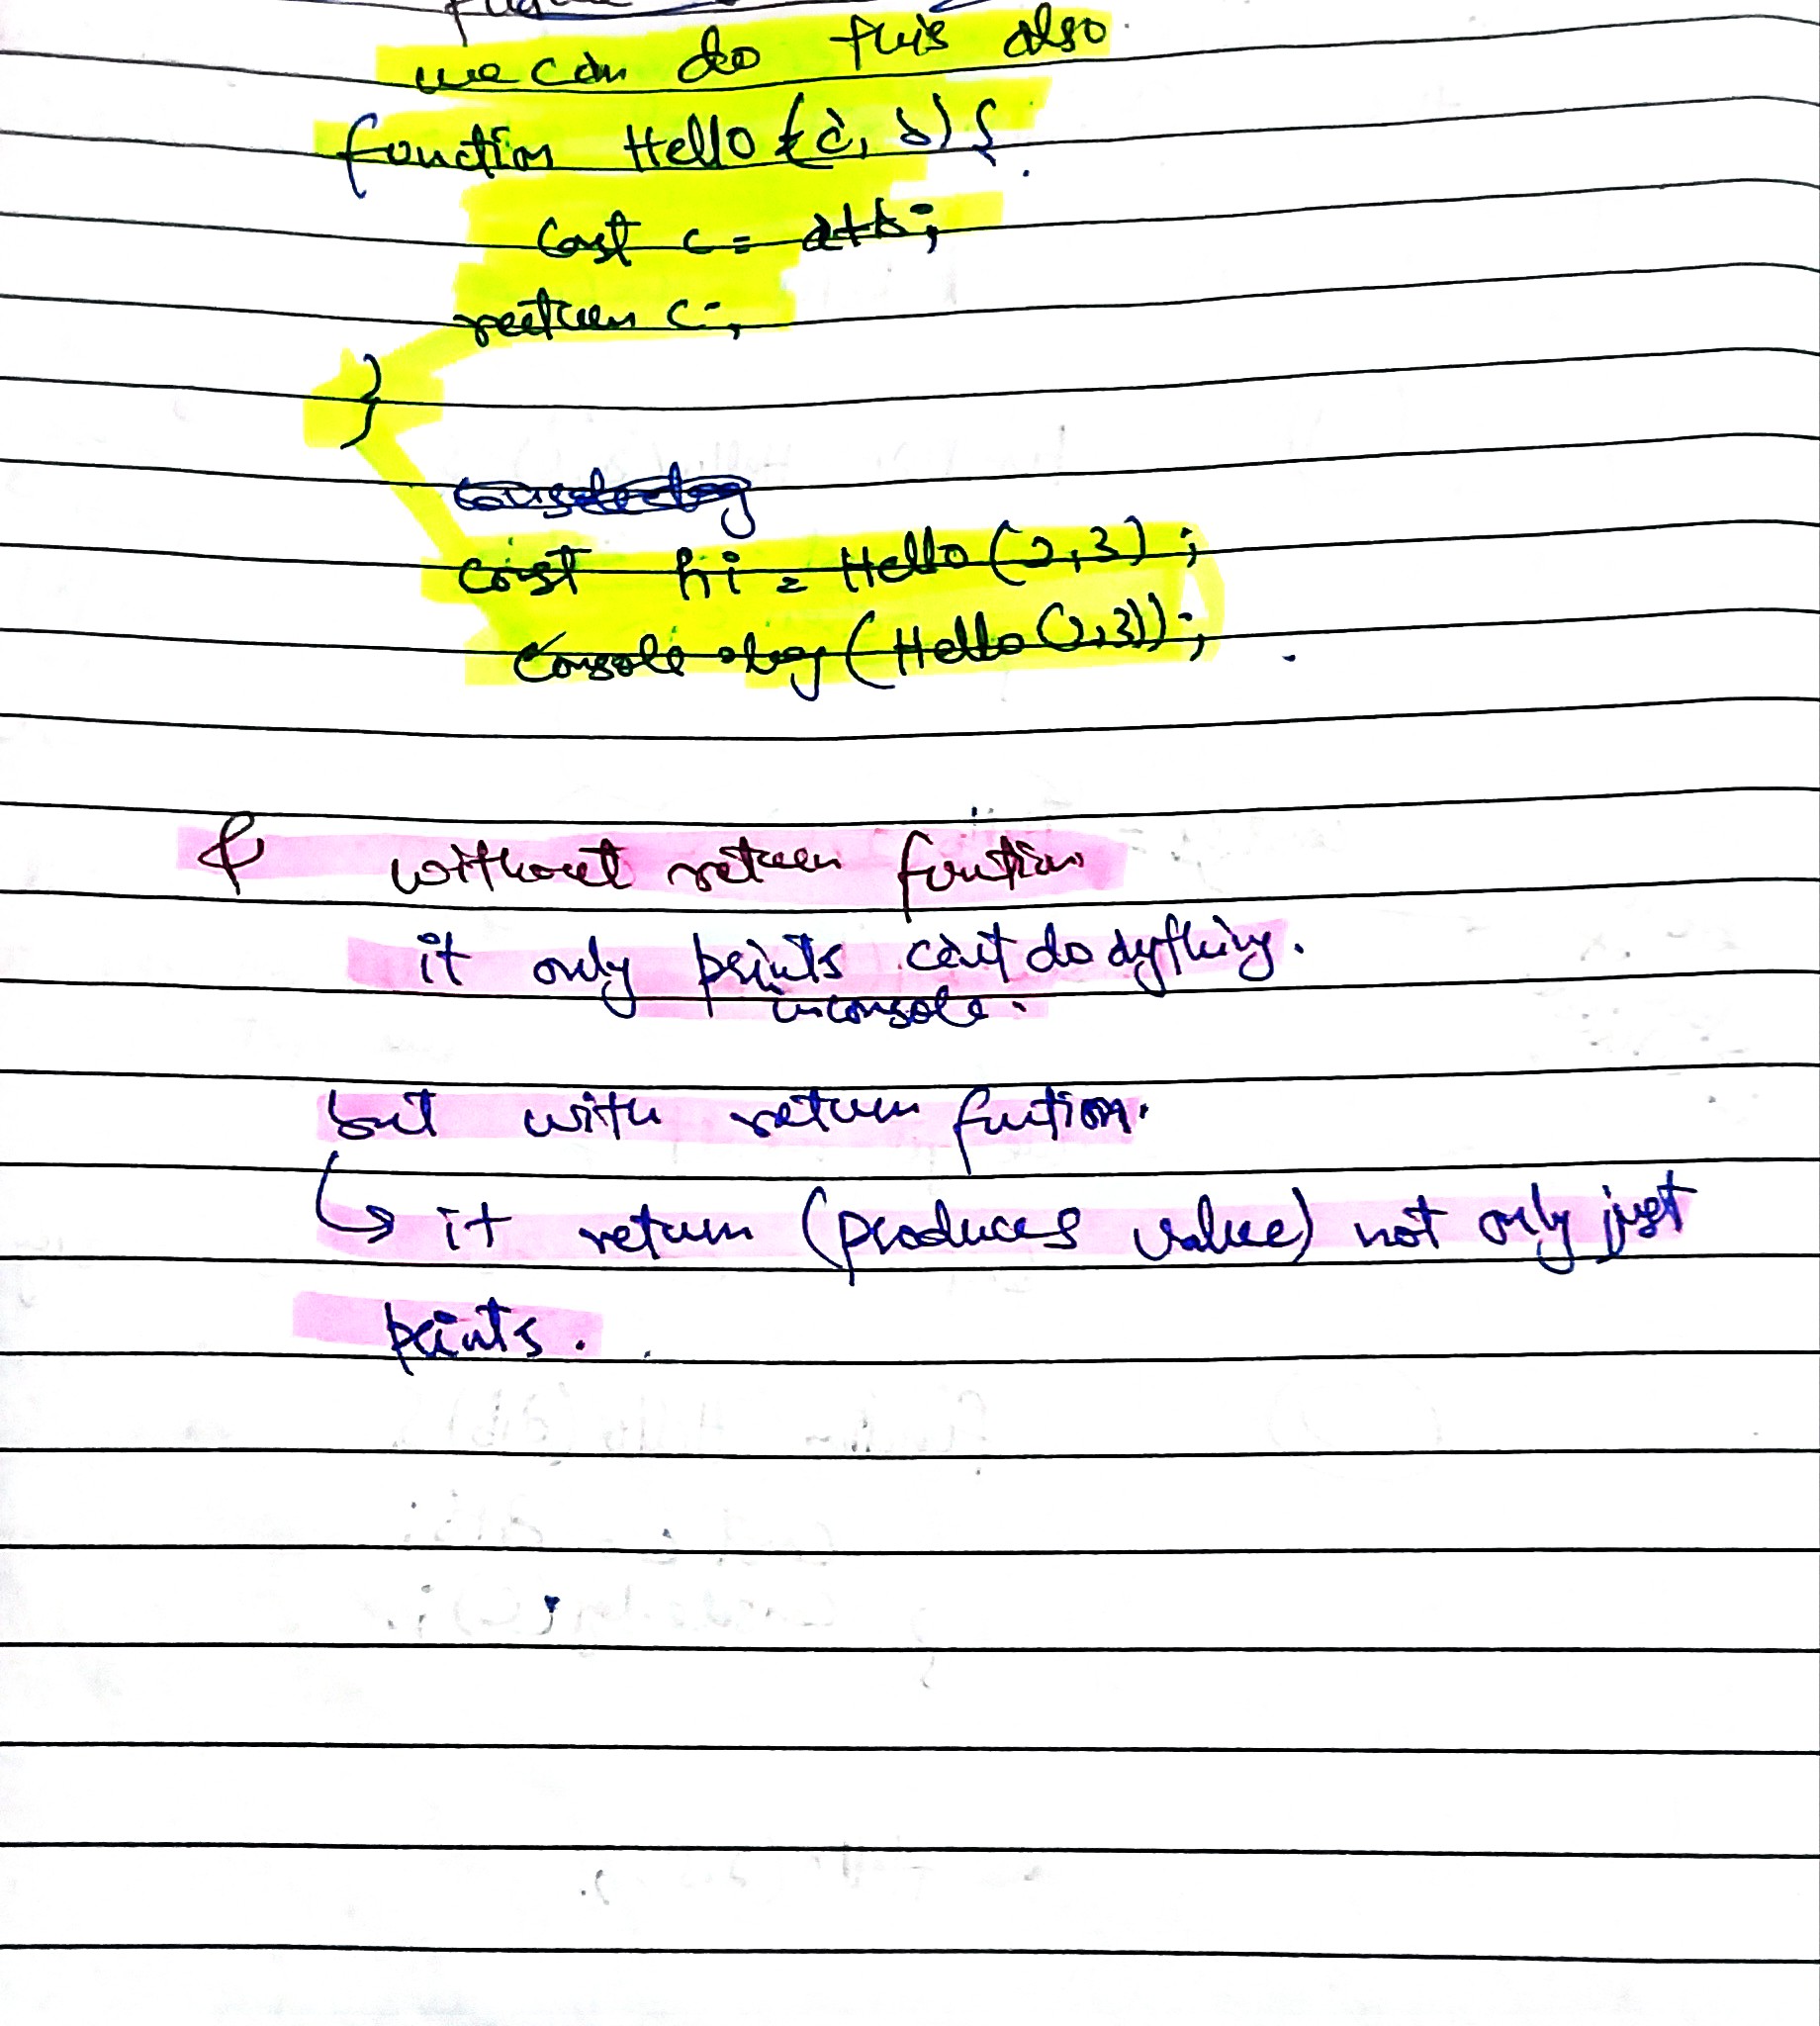 we can do this also
function Hello (a, b) {
const c = a+b;
return c;
}
const hi = Hello (2,3);
console.log (Hello (2,3));
without return function
it only prints can't do anything.
in console.
but with return fuction.
↳ it return (produces value) not only just
prints.